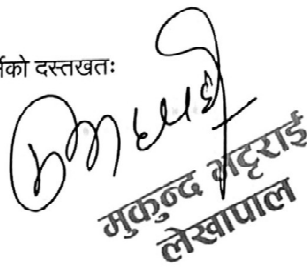 को दस्तखतः
मुकुन्द भट्टराई
लेखापाल